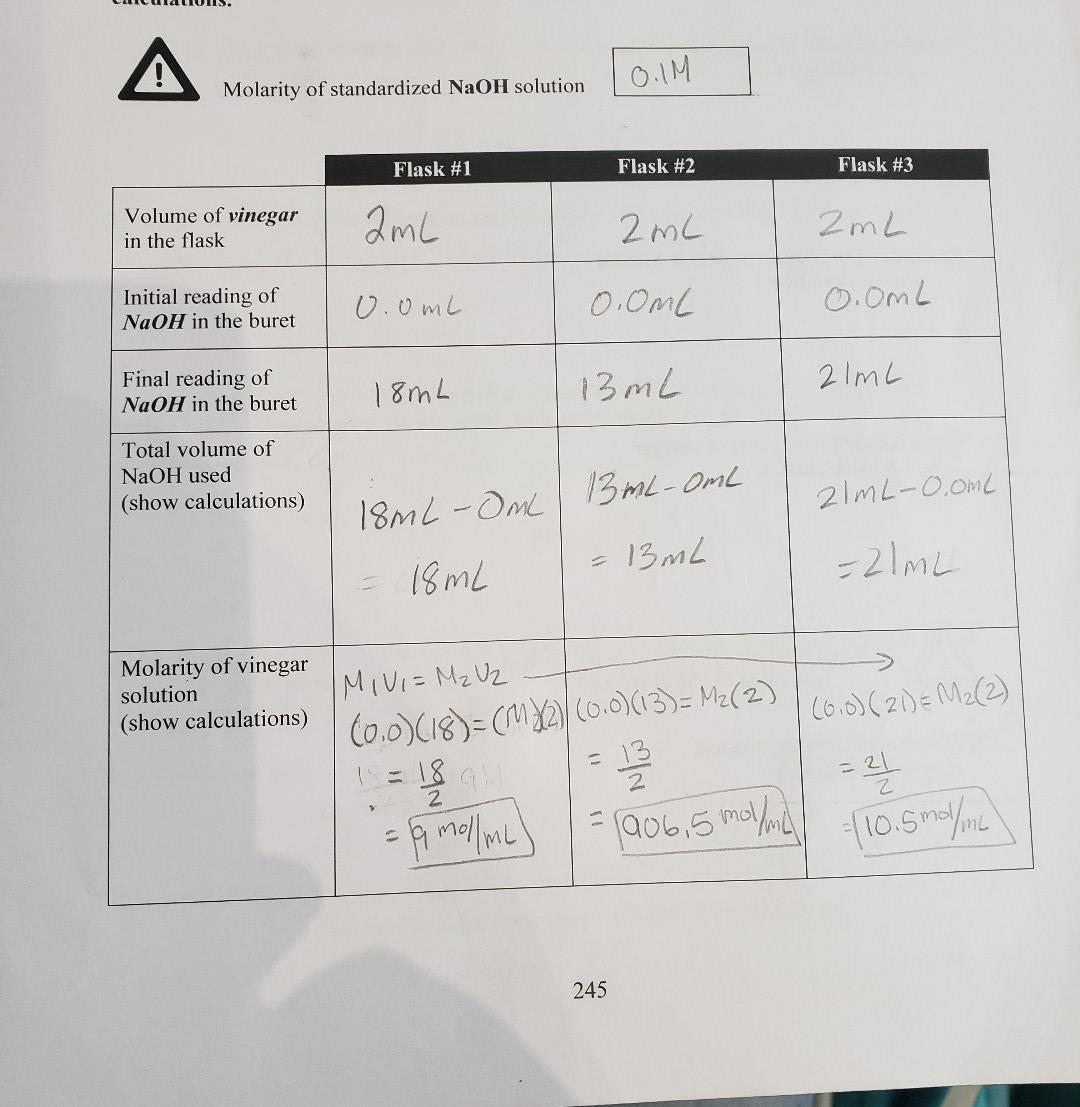 calculations.
Molarity of standardized NaOH solution 0.1M
Flask #1 Flask #2 Flask #3
Volume of vinegar
in the flask
2mL 2mL 2mL
Initial reading of
NaOH in the buret
0.0mL 0.0mL 0.0mL
Final reading of
NaOH in the buret
18mL 13mL 21mL
Total volume of
NaOH used
(show calculations)
18mL - 0mL
= 18mL
13mL-0mL
= 13mL
21mL-0.0mL
=21mL
Molarity of vinegar
solution
(show calculations)
M1V1 = M2V2
(0.0)(18)=(M2)(2)
= 18
2
= 9 mol/mL
(0.0)(13)= M2(2)
= 13
2
= 906.5 mol/mL
(0.0)(21)= M2(2)
= 21
2
= 10.5 mol/mL
245